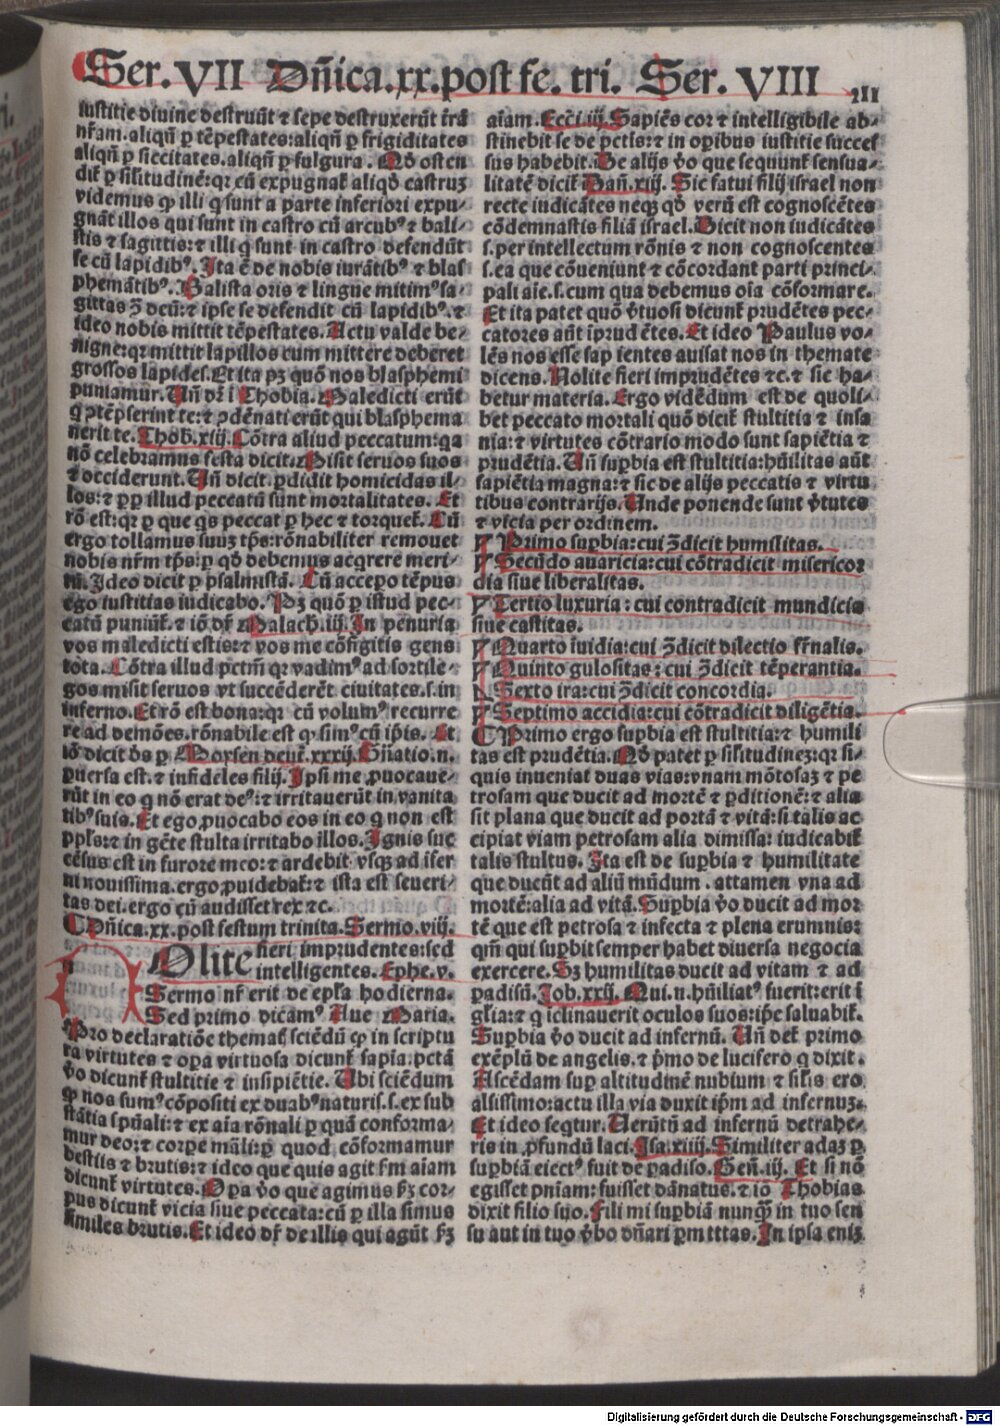 Ser. VII Dñica.xx.post fe. tri. Ser. VIII
iustitie diuine destruũt ⁊ sepe destruxerũt trã
nr̃am. aliqñ p tẽpestates: aliqñ p frigiditates
aliqñ p siccitates. aliqñ p fulgura. Qď osten
dit̃ p sil̃itudinẽ: qꝛ cũ expugnat̃ aliqď castruʒ
videmus ꝙ illi q̃ sunt a parte inferiori expu-
gnãt illos qui sunt in castro cũ arcubꝰ ⁊ bali-
stis ⁊ sagittis: ⁊ illi q̃ sunt in castro defendũt
se cũ lapidibꝰ. Ita ẽ de nobis iurãtibꝰ ⁊ blas
phemãtibꝰ. Balista oris ⁊ lingue mitimꝰ sa-
gittas ↄ̃ deũ: ⁊ ipse se defendit cũ lapidibꝰ. ⁊
ideo nobis mittit tẽpestates. Actu valde be-
nigne: qꝛ mittit lapillos cum mittere deberet
grossos lapides. Et ita pʒ quõ nos blasphemi
puniamur. Uñ dr̃ ĩ Thobia. Maledicti erũt
q ↄ̃tẽpserint te: ⁊ ↄdẽnati erũt qui blasphema
uerit te. Thob. xiij. Cõtra aliud peccatum: qa
nõ celebramus festa dicit. Misit seruos suos
⁊ occiderunt. Uñ dicit. pdidit homicidas il-
los: ⁊ pp illud peccatũ sunt mortalitates. Et
rõ est: qꝛ p que q̃s peccat p hec ⁊ torquet̃. Cũ
ergo tollamus suuʒ tp̃s: rõnabiliter remouet
nobis nr̃m tp̃s: p qď debemus acq̃rere meri-
tũ. Ideo dicit p psalmistã. Cũ accepo tẽpus
ego iustitias iudicabo. Pʒ quõ p istud pec-
catũ puniũt̃. ⁊ iõ dr̃ Malach. iij. In penuria
vos maledicti estis: ⁊ vos me cõfigitis gens
tota. Cõtra illud pctm̃ qꝛ vadimꝰ ad sortile-
gos misit seruos vt succẽderẽt ciuitates. s. in
inferno. Et rõ est bona: qꝛ cũ volumꝰ recurre
re ad demões. rõnabile est ꝙ simꝰ cũ ip̃is. Et
iõ dicit dñs p Moysen deut̃. xxxij. Gñatio. n.
puersa est. ⁊ infideles filij. Ipsi me ꝓuocaue-
rũt in eo q nõ erat deꝰ: ⁊ irritauerũt in vanita
tibꝰ suis. Et ego ꝓuocabo eos in eo q non est
pp̃ls: ⁊ in gẽte stulta irritabo illos. Ignis suc
cẽsus est in furore meo: ⁊ ardebit vsqʒ ad ĩfer
ni nouissima. ergo ꝓuidebat̃: ⁊ ista est seueri-
tas dei. ergo cũ audisset rex ⁊c.
Dñica. xx. post festum trinita. Sermo. viij.
Nolite fieri imprudentes: sed
intelligentes. Ephe. v.
Sermo nr̃ erit de epl̃a hodierna.
Sed primo dicamꝰ Aue Maria.
Pro declaratiõe thematis sciẽdũ ꝙ in scriptu
ra virtutes ⁊ opa virtuosa dicunt̃ sapia: pctã
ṽo dicunt̃ stultitie ⁊ insipiẽtie. Ubi sciẽdum
ꝙ nos sumꝰ cõpositi ex duabꝰ naturis. s. ex sub
stãtia sp̃uali: ⁊ ex aĩa rõnali p quã conforma-
mur deo: ⁊ corpe mãli: p quod cõformamur
bestiis ⁊ brutis: ⁊ ideo que quis agit fm aĩam
dicunt̃ virtutes. Opa ṽo que agimus fʒ cor-
pus dicunt̃ vicia siue peccata: cũ p illa simus
similes brutis. Et ideo dr̃ de illis qui agũt fʒ
aĩam. Ecci. iij. Sapiẽs cor ⁊ intelligibile ab-
stinebit se de pctis: ⁊ in opibus iustitie succes
sus habebit. De alijs ṽo que sequunt̃ sensua-
litatẽ dicit̃ Dañ. xiij. Sic fatui filij israel non
recte iudicãtes neqʒ qď verũ est cognoscẽtes
cõdemnastis filiã israel. Dicit non iudicãtes
s. per intellectum rõnis ⁊ non cognoscentes
s. ea que cõueniunt ⁊ cõcordant parti princi-
pali aĩe. s. cum qua debemus oĩa cõformare.
Et ita patet quõ ṽtuosi dicunt̃ prudẽtes pec-
catores aũt ĩprudẽtes. Et ideo Paulus vo-
lẽs nos esse sapientes auisat nos in themate
dicens. Nolite fieri imprudẽtes ⁊c. ⁊ sic ha-
betur materia. Ergo vidẽdum est de quoli-
bet peccato mortali quõ dicit̃ stultitia ⁊ insa
nia: ⁊ virtutes cõtrario modo sunt sapiẽtia ⁊
prudẽtia. Uñ supbia est stultitia: hũilitas aũt
sapiẽtia magna: ⁊ sic de alijs peccatis ⁊ virtu
tibus contrarijs. Unde ponende sunt ṽtutes
⁊ vicia per ordinem.
Primo supbia: cui ↄ̃dicit humilitas.
Secũdo auaricia: cui cõtradicit misericor
dia siue liberalitas.
Tertio luxuria: cui contradicit mundicia
siue castitas.
Quarto ĩuidia: cui ↄ̃dicit dilectio fr̃nalis.
Quinto gulositas: cui ↄ̃dicit tẽperantia.
Sexto ira: cui ↄ̃dicit concordia.
Septimo accidia: cui cõtradicit diligẽtia.
Primo ergo supbia est stultitia: ⁊ humili
tas est prudẽtia. Qď patet p sil̃itudineʒ: qꝛ si-
quis inueniat duas vias: vnam mõtosaʒ ⁊ pe
trosam que ducit ad mortẽ ⁊ pditionẽ: ⁊ alia
sit plana que ducit ad portã ⁊ vitã: si talis ac
cipiat viam petrosam alia dimissa: iudicabit̃
talis stultus. Ita est de supbia ⁊ humilitate
que ducũt ad aliũ mũdum. attamen vna ad
mortẽ: alia ad vitã. Supbia ṽo ducit ad mor
tẽ que est petrosa ⁊ infecta ⁊ plena erumnis:
qm̃ qui supbit semper habet diuersa negocia
exercere. Sʒ humilitas ducit ad vitam ⁊ ad
padisũ. Job. xxij. Qui. n. hũiliatꝰ fuerit: erit ĩ
gl̃ia: ⁊ q iclinauerit oculos suos: ip̃e saluabit̃.
Supbia ṽo ducit ad infernũ. Uñ det̃ primo
exẽplũ de angelis. ⁊ p̃mo de lucifero q dixit.
Ascẽdam sup altitudinẽ nubium ⁊ sil̃is ero
altissimo: actu illa via duxit ip̃m ad infernuʒ.
Et ideo seqtur. Uerũtñ ad infernũ detrahe-
ris in ꝓfundũ laci. Isa. xiiij. Similiter adaʒ p
supbiã eiectꝰ fuit de padiso. Geñ. iij. Et si nõ
egisset pniam: fuisset dãnatus. ⁊ iõ Thobias
dixit filio suo. Fili mi supbiã nunqʒ in tuo sen
su aut in tuo ṽbo dñari pmittas. In ipsa eniʒ
Digitalisierung gefördert durch die Deutsche Forschungsgemeinschaft - DFG